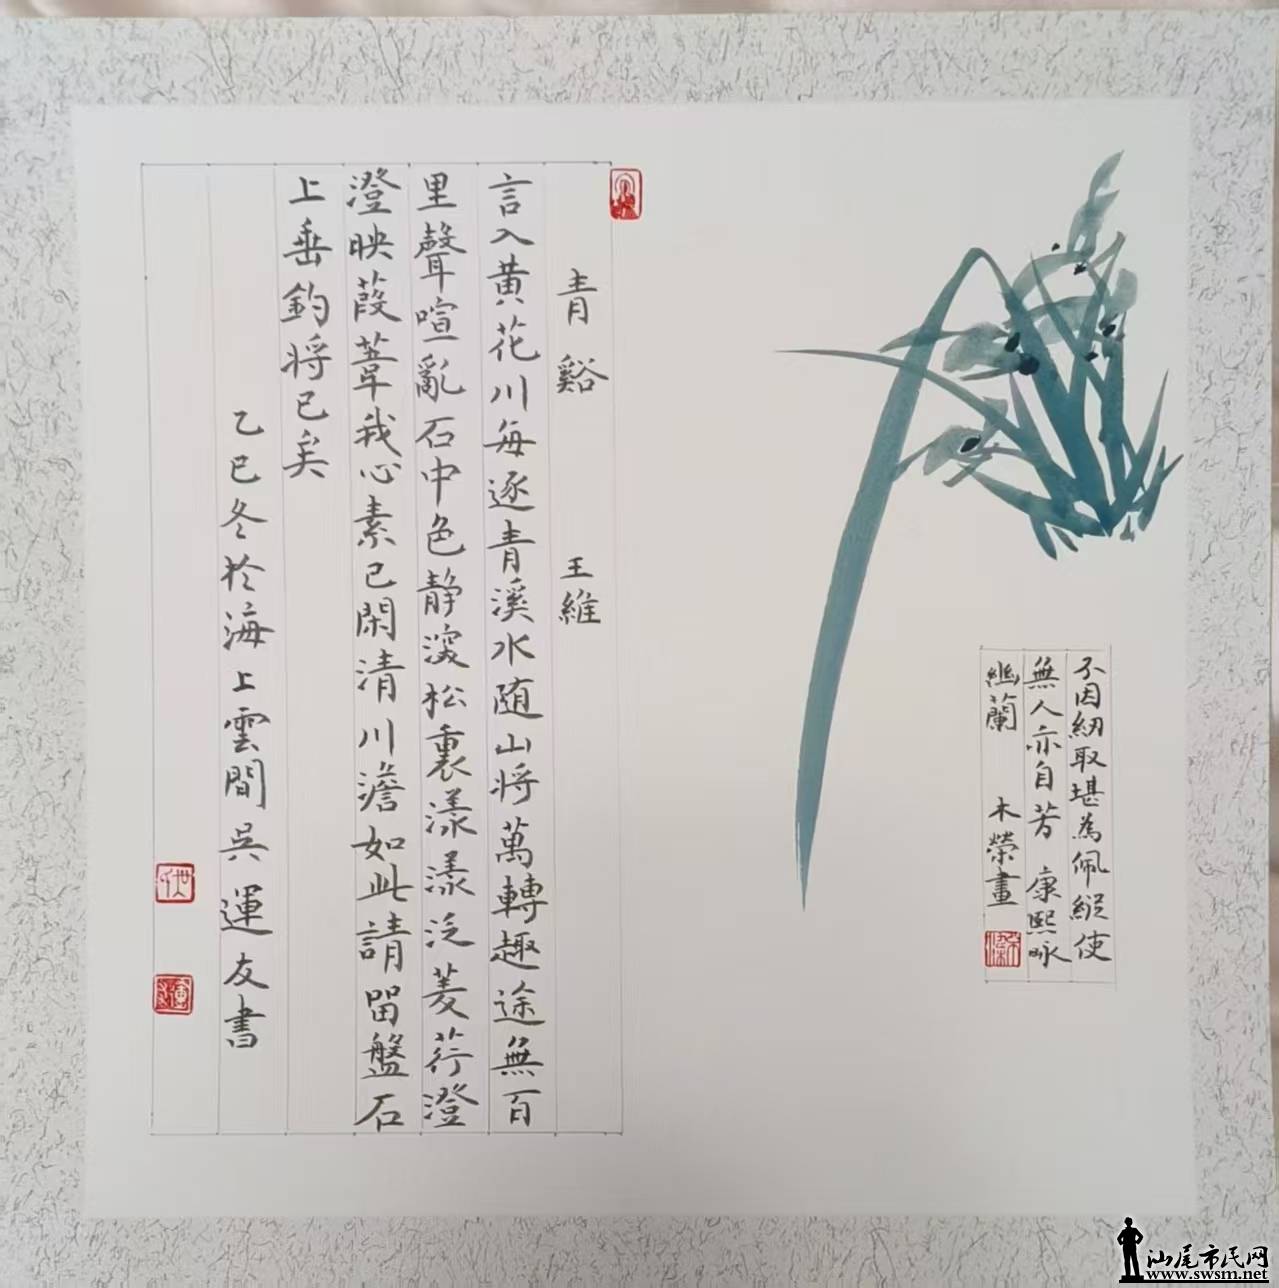 不因紉取堪為佩縱使
無人亦自芳 康熙咏
幽蘭 木榮畫
青谿 王維
言入黄花川每逐青溪水随山将萬轉趣途無百
里聲喧亂石中色静深松裏漾漾泛菱荇澄
澄映葭葦我心素已閑清川澹如此請留盤石
上垂釣将已矣
乙巳冬於海上雲間吳運友書
汕尾市民网
www.swsm.net